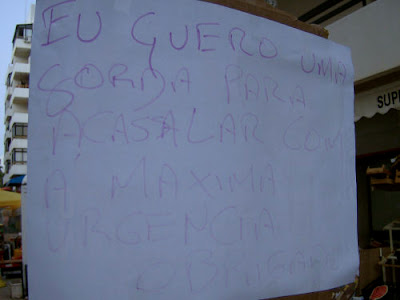 EU QUERO UMA
GORDA PARA
ACASALAR COM
A MAXIMA
URGENCIA
OBRIGADO
SUP